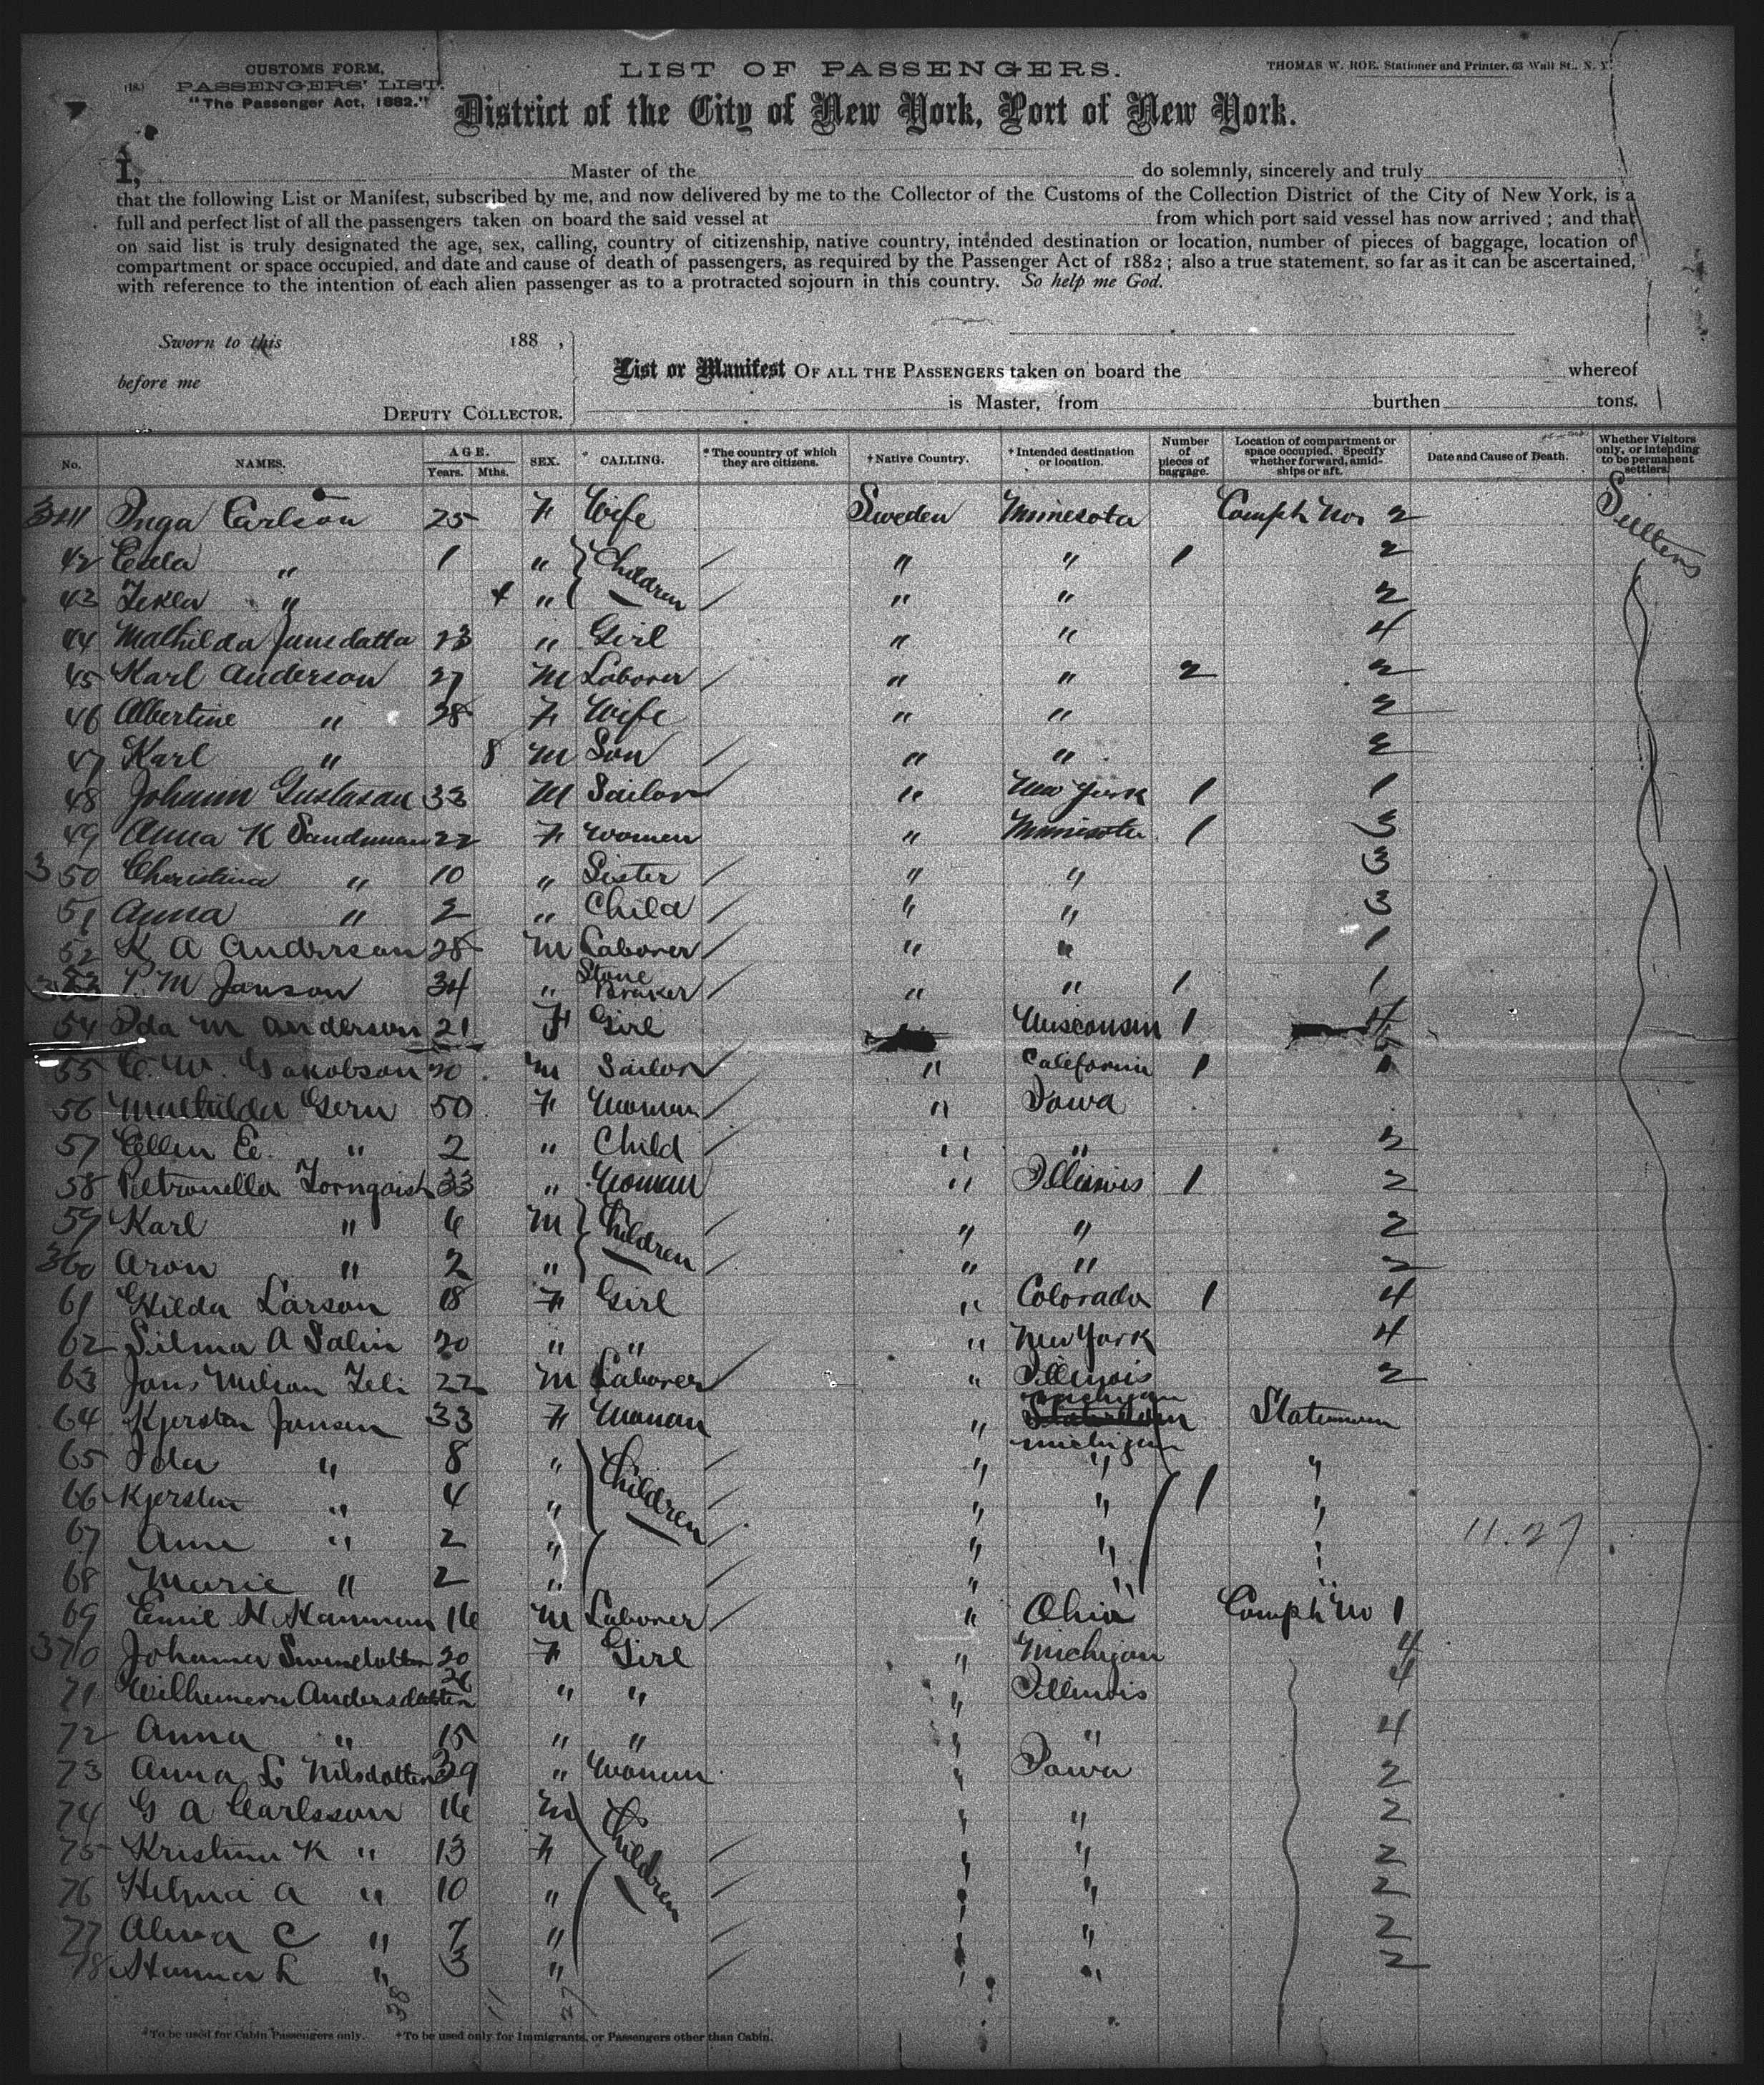 CUSTOMS FORM,
(18.) PASSENGERS' LIST.
"The Passenger Act, 1882."
LIST OF PASSENGERS.
THOMAS W. ROE, Stationer and Printer, 63 Wall St., N. Y.
District of the City of New York, Port of New York.
I, Master of the do solemnly, sincerely and truly
that the following List or Manifest, subscribed by me, and now delivered by me to the Collector of the Customs of the Collection District of the City of New York, is a
full and perfect list of all the passengers taken on board the said vessel at from which port said vessel has now arrived ; and that
on said list is truly designated the age, sex, calling, country of citizenship, native country, intended destination or location, number of pieces of baggage, location of
compartment or space occupied, and date and cause of death of passengers, as required by the Passenger Act of 1882 ; also a true statement, so far as it can be ascertained,
with reference to the intention of each alien passenger as to a protracted sojourn in this country. So help me God.
Sworn to this 188 ,
before me
DEPUTY COLLECTOR.
List or Manifest OF ALL THE PASSENGERS taken on board the whereof
is Master, from burthen tons.
No. NAMES. AGE. Years. Mths. SEX. CALLING. *The country of which they are citizens. †Native Country. †Intended destination or location. Number of pieces of baggage. Location of compartment or space occupied. Specify whether forward, amidships or aft. Date and Cause of Death. Whether Visitors only, or intending to be permanent settlers.
341 Inga Carlson 25 F Wife Sweden Minnesota Compt No. 2
42 " 1 " Children " " 1 2
43 " 4 " " " 2
44 Mathilda 23 " Girl " " 4
45 Karl Anderson 27 M Laborer " " 2 2
46 Albertine " 28 F Wife " " 2
47 Karl " 8 M Son " " 2
48 Johann Gustafsan 33 M Sailor " New York 1 1
49 Anna K Sandman 22 F Women " Minnesota 1 3
350 Christina " 10 " Sister " " 3
51 Anna " 2 " Child " " 3
52 K A Anderson 28 M Laborer " " 1
353 P. M Janson 34 " Stone Braker " " 1 1
54 Ida M Anderson 21 F Girl Wisconsin 1 4
55 C. W. Jakobson 20 M Sailor " California 1 1
56 Mathilda Gern 50 F Woman " Iowa
57 Ellen E. " 2 " Child " " 2
58 Petronella Tornqvist 33 " Woman " Illinois 1 2
59 Karl " 6 M Children " " 2
360 Aron " 2 " " " 2
61 Hilda Larson 18 F Girl " Colorado 1 4
62 Silma A Salin 20 " " " New York 4
63 Jons 22 M Laborer " Illinois 2
64 Kjersten Jansen 33 F Woman " Michigan
65 Ida " 8 " Children " " "
66 Kjersten " 4 " " " 1 "
67 Anna " 2 " " " " 11.27
68 Marie " 2 " " " "
69 Emil H 16 M Laborer " Ohio Compt No 1
370 Johanna 20 F Girl " Michigan 4
71 Andersdotter 26 " " " Illinois 4
72 Anna " 15 " " " " 4
73 Anna L Nilsdotter 39 " Woman " Iowa 2
74 G A Carlsson 16 M Children " " 2
75 Kristina K " 13 F " " 2
76 Hilma A " 10 " " " 2
77 Alma C " 7 " " " 2
78 Hanna L " 3 " " " 2
38 11 27
*To be used for Cabin Passengers only. †To be used only for Immigrants, or Passengers other than Cabin.